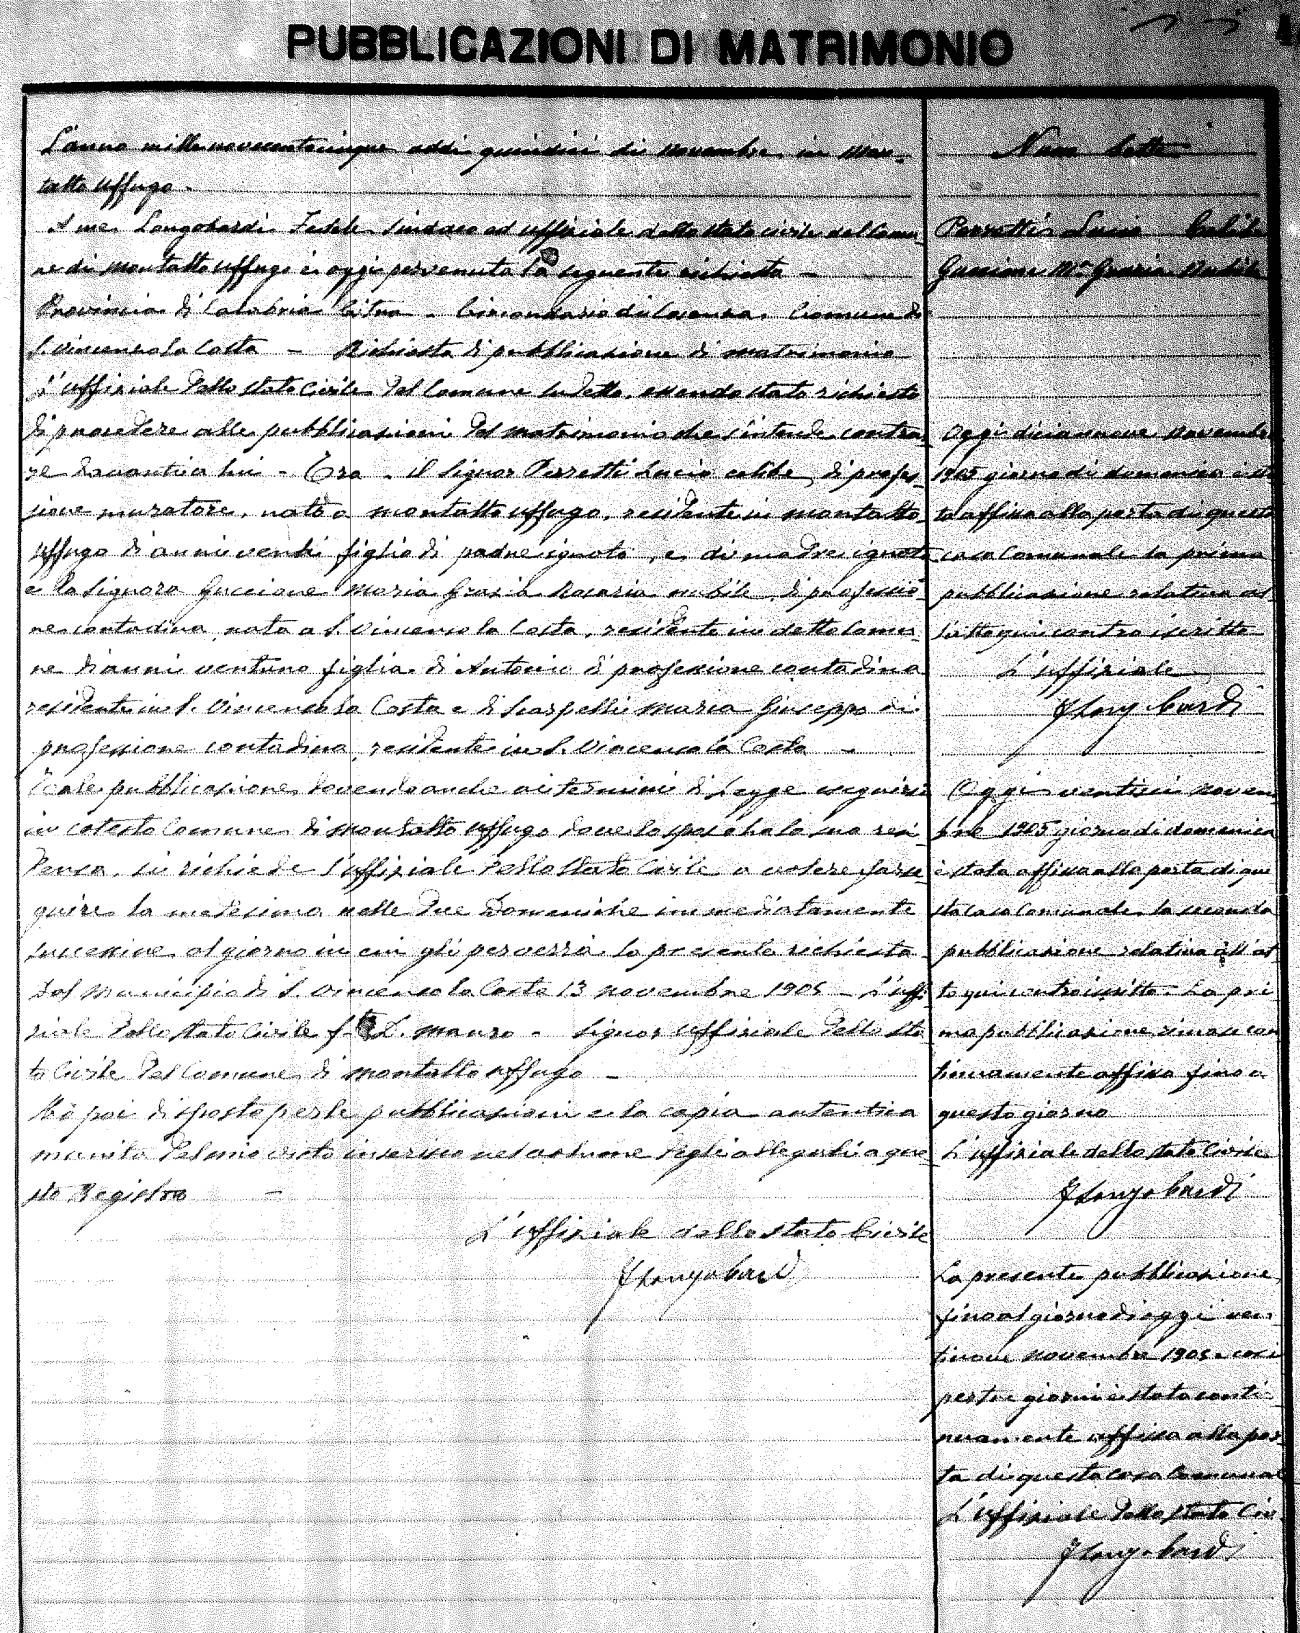 PUBBLICAZIONI DI MATRIMONIO
L'anno mille novecentocinque addì quindici di novembre in Mon-
talto Uffugo.
A me Longobardi Fedele Sindaco ed uffiziale dello stato civile del Comu-
ne di Montalto Uffugo è oggi pervenuta la seguente richiesta —
Provincia di Calabria Citra - Circondario di Cosenza. Comune di
S. Vincenzo la Costa — Richiesta di pubblicazione di matrimonio
L'uffiziale dello stato Civile del Comune sudetto, essendo stato richiesto
di procedere alle pubblicazioni del matrimonio che s'intende contrar-
re davanti a lui - Tra - il Signor Perretti Lucio celibe, di profes-
sione muratore, nato a Montalto Uffugo, residente in Montalto
Uffugo di anni venti figlio di padre ignoto, e di madre ignota
e la Signora Guccione Maria Grazia Rosaria nubile, di professio-
ne contadina, nata a S. Vincenzo la Costa, residente in detto Comu-
ne di anni ventuno figlia di Antonio di professione contadina
residente in S. Vincenzo la Costa e di Scarpelli Maria Giuseppa di
professione contadina, residente in S. Vincenzo la Costa —
Tale pubblicazione dovendo anche ai termini di Legge eseguirsi
in cotesto Comune di Montalto Uffugo dove lo sposo ha la sua resi-
denza, si richiede l'uffiziale dello Stato Civile a volere far ese-
guire la medesima nelle due Domeniche immediatamente
successive al giorno in cui gli perverrà la presente richiesta
Dal Municipio di S. Vincenzo la Costa 13 novembre 1905 — L'uffi-
ziale dello stato Civile f- D. Mauro - Signor Uffiziale dello sta-
to Civile del Comune di Montalto Uffugo —
Ho poi disposto per le pubblicazioni e la copia autentica
munita del mio visto inserisco nel volume degli allegati a que-
sto Registro —
L'uffiziale dello stato Civile
F Longobardi
Num Sette
Perretti Lucio Celibe
Guccione M.a Grazia Nubile
Oggi diciannove novembre
1905 giorno di domenica è sta-
ta affissa alla porta di questa
casa Comunale la prima
pubblicazione relativa al-
l'atto qui contro iscritto
L'uffiziale
F Longobardi
Oggi ventisei novem-
bre 1905 giorno di domenica
è stata affissa alla porta di que-
sta casa Comunale la seconda
pubblicazione relativa all'at-
to qui contro iscritto - La pri-
ma pubblicazione rimase con-
tinuamente affissa fino a
questo giorno
L'uffiziale dello stato Civile
F Longobardi
La presente pubblicazione
fino al giorno di oggi ven-
tinove novembre 1905 e così
per tre giorni è stata conti-
nuamente affissa alla por-
ta di questa casa Comunale
L'uffiziale dello stato Civ
F Longobardi